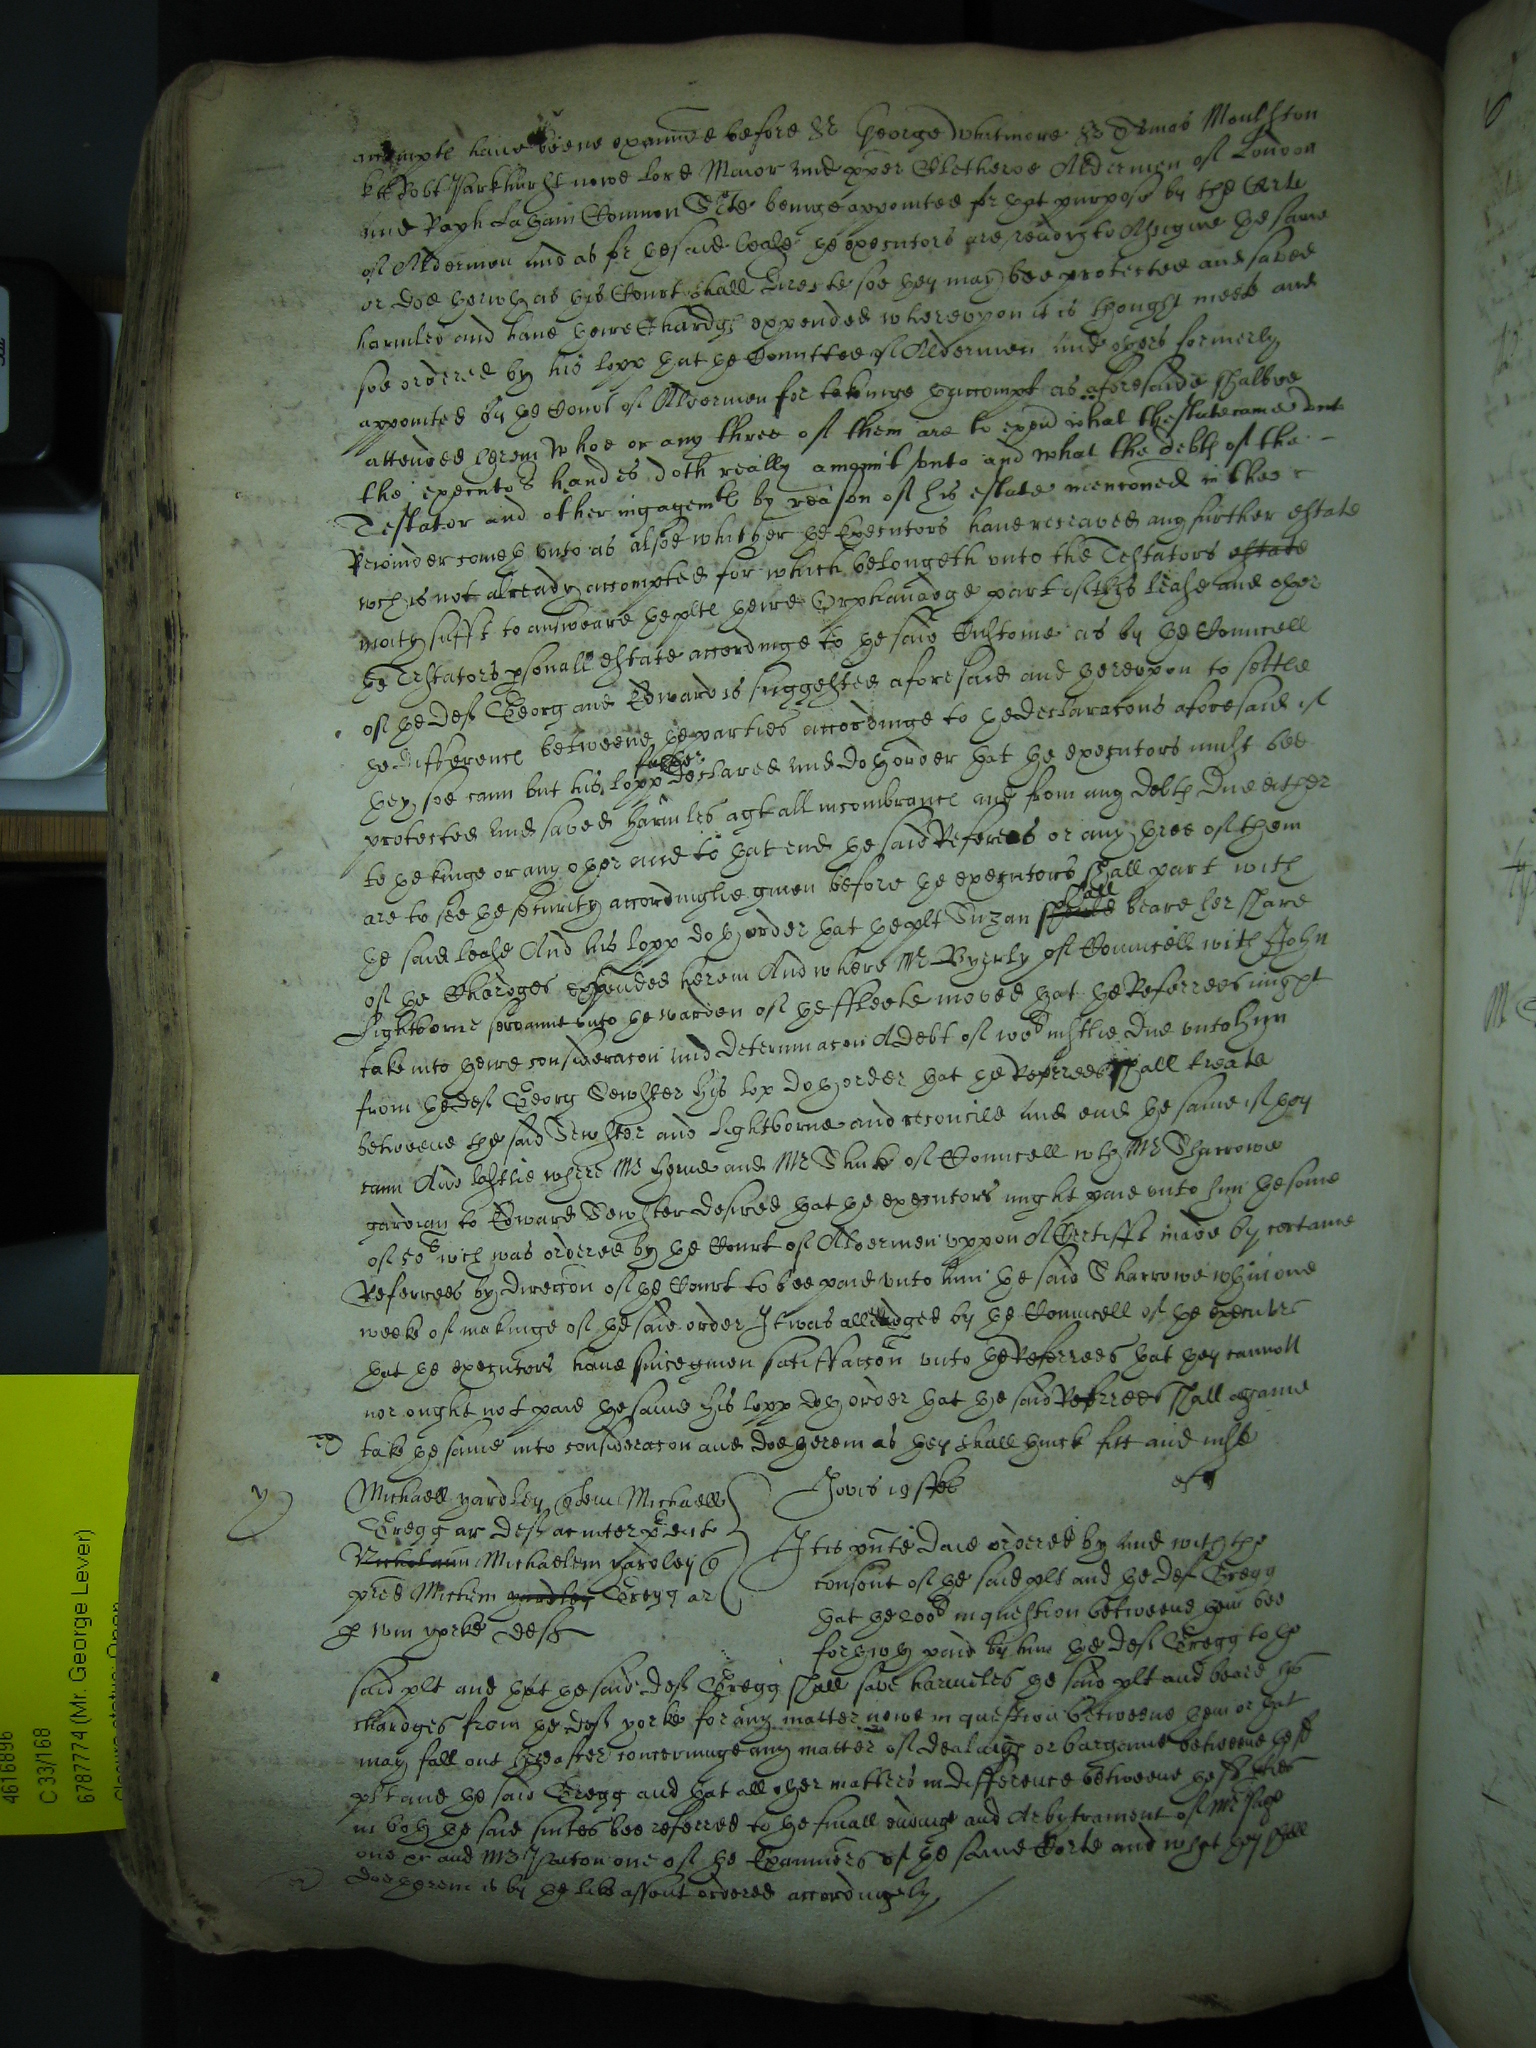 accompts have beene exammed before Sr George Whitmore Sr Tomas Moulston
kts Robt Parkhurst nowe lord Maior and Xpfer Cletheroe Aldermen of London
and Raph Latham Common Srte beinge appointed for that purpose by the Corte
of Aldermen and as for the said lease the executors are readye to Assigne the same
or doe therwth as this Court shall directe soe they may bee protected and saved
harmles and have theire Chardgs expended whereupon it is thought meete and
soe ordered by his lopp that the Comittee of Aldermen and others formerly
appointed by the Court of Aldermen for takinge thaccompt as aforesaide shalbee
attended therein whoe or any three of them are to expend what thestate came unto
the executors handes doth really amount unto and what the debts of the
Testator and other ingagemts by reason of his estate mencioned in the
Rewinder cometh unto as alsoe whither the Executors have receaved any further estate
wch is not already accompted for which belongeth unto the Testators estate
moity sufft to answeare the plts theire Orphanadge part of this lease and other
the Testators psonall estate accordinge to the said Custome as by the Councell
of the deft Georg and Edward is suggested aforesaid and thereupon to settle
the difference betweene the parties accordinge to the declaracons aforesaid if
they soe cann but his lopp further declared and doth order that the executors must bee
protected and saved harmles agt all incombrance and from any debts due either
to the kinge or any other and to that end the said Referees or any three of them
are to see the security accordinglie given before the executors shall part with
the said lease And his lopp doth order that the plt Suzan should shall beare her share
of the Chardges expended herein And where Mr Byerly of Councell with John
Lightborne servannt unto the warden of the ffleete moved that the Referrees might
take into theire consideracon and determinacon A debt of 100l iustlie due unto hym
from the deft Georg Sewster his lop doth order that the Referrees shall treate
betweene the said Sewster and Lightborne and reconcile and end the same if they
cann And lastlie where Mr Herne and Mr Shute of Councell wth Mr Sharrowe
gardian to Edward Sewster desired that the executors might paie unto him the some
of 50l wch was ordered by the Court of Aldermen uppon A Certifft made by certaine
Referrees by direccon of the Court to bee paid unto him the said Sharrowe wthin one
weeke of makinge of the said order It was alleadged by the Councell of the executrs
that the executors have since given satisfaccon unto the Referrees that they cannott
nor ought not paie the same his lopp doth order that the said Referrees shall againe
take the same into consideracon and doe therein as they shall thinck fitt and iust
Michaell yardley Michaell
Gregg ar deft
Nicholaum Michaelem yardley
Michem yardley Gregg ar
Willm yorke defts
Jovis 19 ffeb
It is pnte daie ordered by and with the
consent of the said plt and the deft Gregg
that the 200l in question betweene them bee
forthwth paid by him the deft Gregg to the
said plt and that the said deft Gregg shall save harmeles the said plt and beare his
chardges from the deft yorke for any matter nowe in question betweene them or that
may fall out hereafter concerninge any matter of dealings or bargaine betweene the sd
plt and the said Gregg and that all other matters in difference betweene the sd pties
in both the said suites bee referred to the finall endinge and Arbitrament of Mr Page
one and Mr one of the Examiners of the same Corte and what they shall
doe therein is by the like assent ordered accordingely
4616896
C 33/168
6787774 (Mr. George Lever)